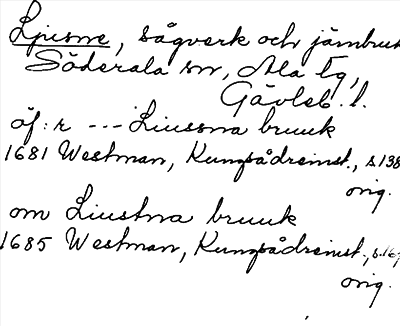 Ljusne, sågverk och järnbruk
Söderala sn, Ala tg,
Gävleb. l.
öf: r --- Liussna bruuk
1681 Westman, Kungsådreinst., s 138
orig.
om Liustna bruuk
1685 Westman, Kungsådreinst., s. 167
orig.